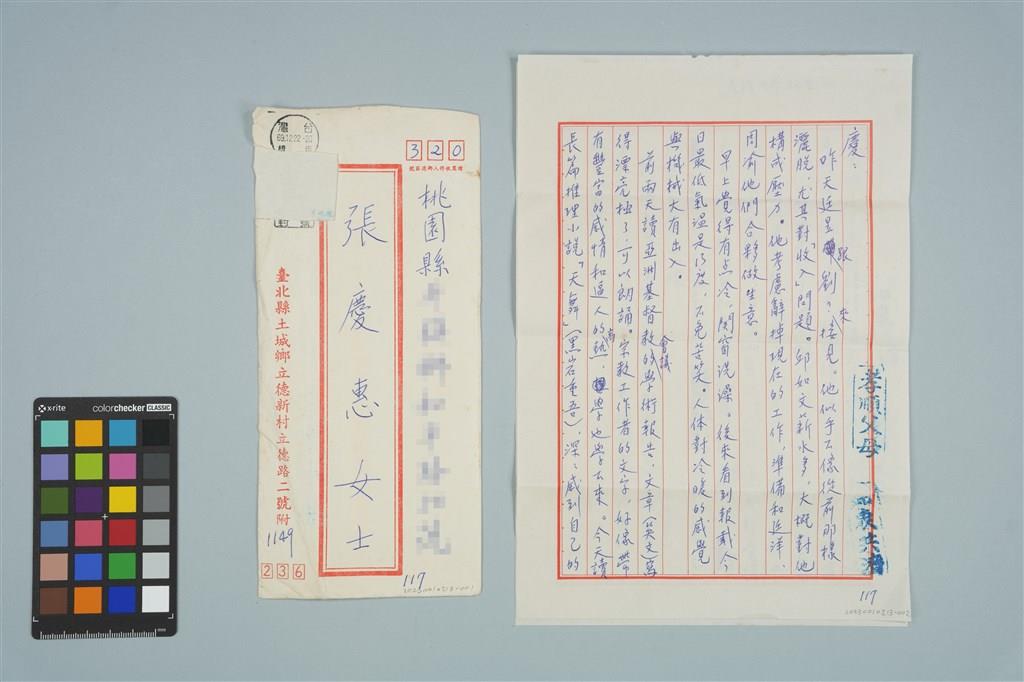 台灣
69.12.22-20
320
請農收件人郵遞區號
桃園縣
張慶惠女士
臺北縣土城鄉立德新村立德路二號附
1149
236
117
2023.001.0213-001
慶：
昨天延昱跟劉？來接見。他似乎不像從前那樣
灑脫，尤其對「收入」問題。邱如文薪水多，大概對他
構成壓力。他考慮辭掉現在的工作，準備和近洋、
周渝他們合夥做生意。
早上覺得有点冷，関窗洗澡。後來看到報載今
日最低氣溫是13度，不免苦笑。人体對冷暖的感覺
與機械大有出入。
前兩天讀亞洲基督教的學術會議報告，文章(英文)寫
得漂亮極了，可以朗誦。宗教工作者的文字，好像帶
有豐富的感情和逼人的，學也學不來。今天讀
長篇推理小說「天舞」(黑岩重吾)，深深感到自己的
孝順父母
117
2023.001.0213-002
xrite
colorchecker CLASSIC
mm